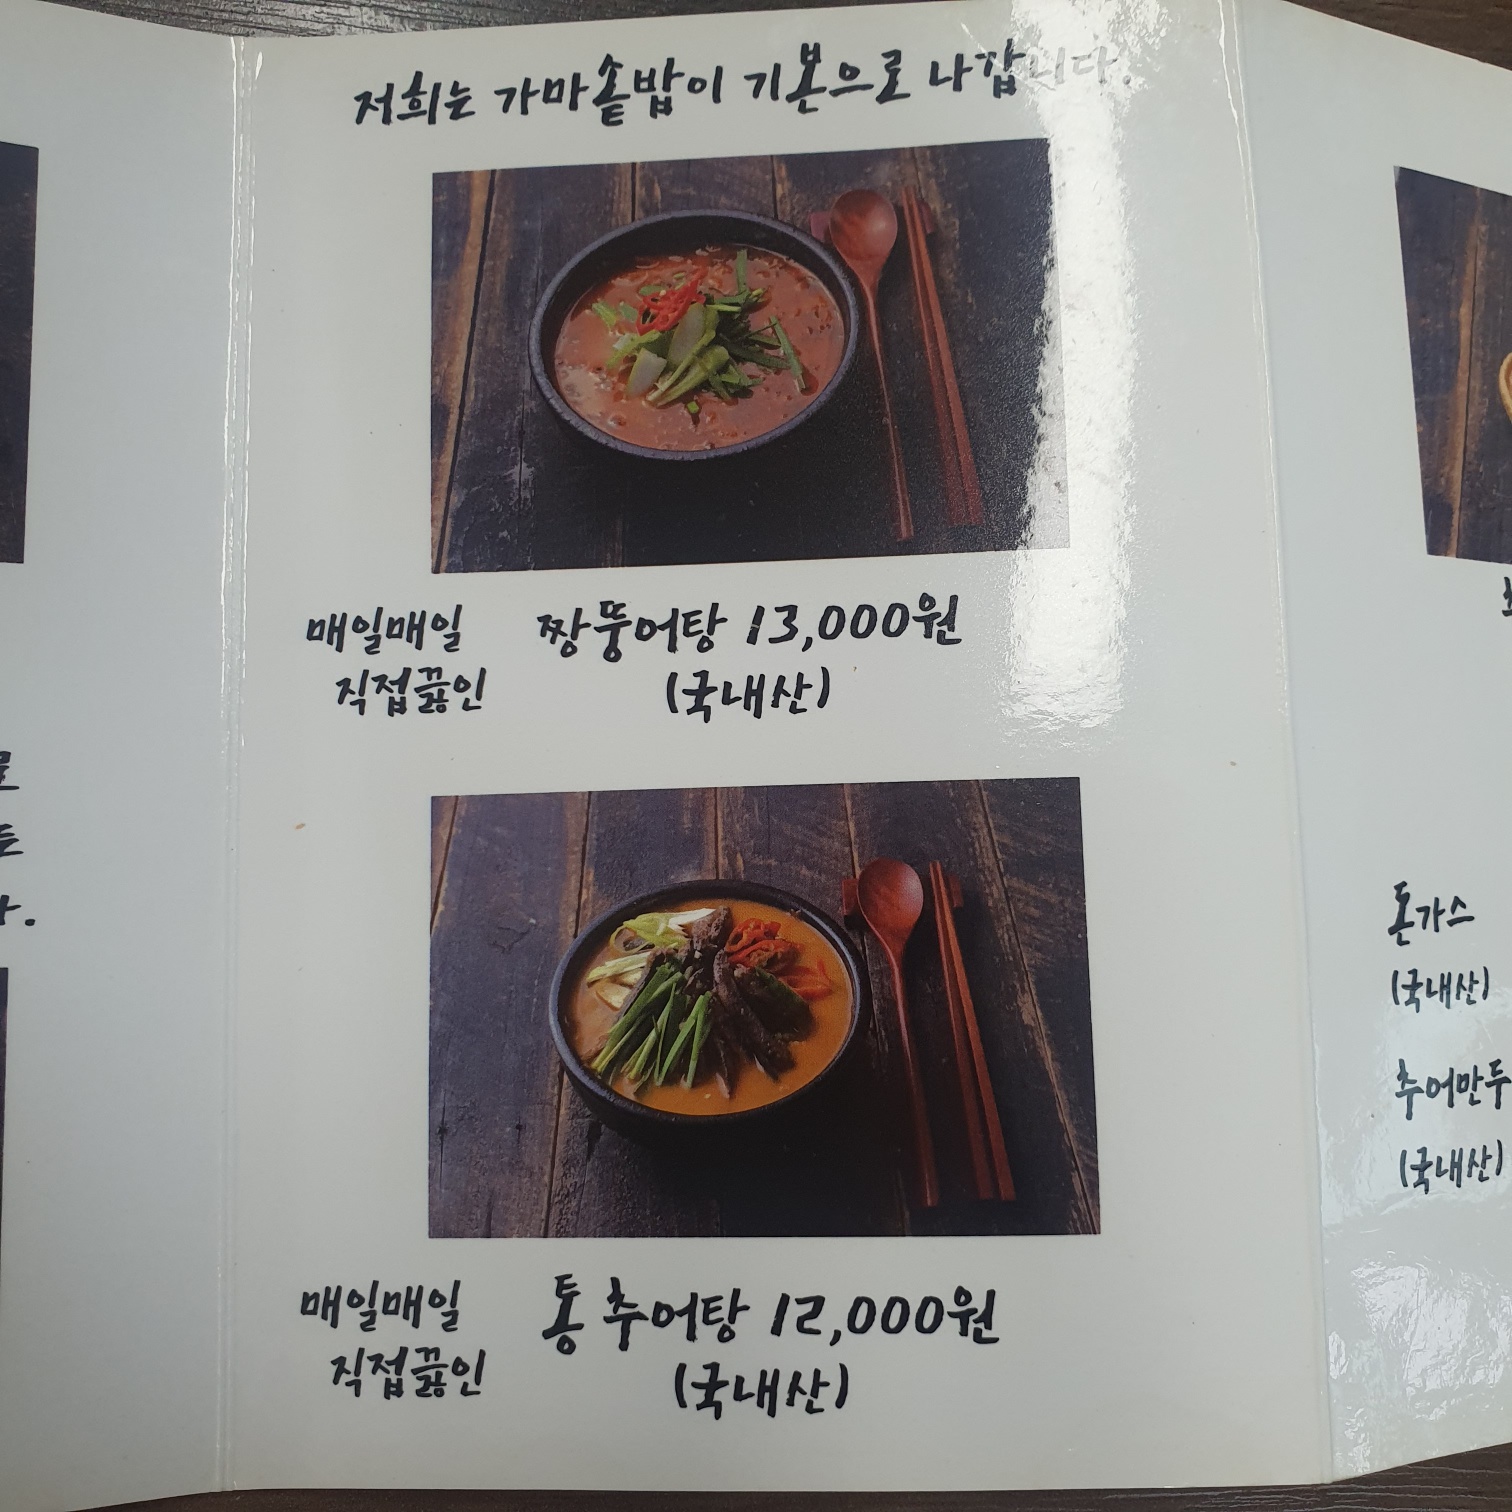 저희는 가마솥밥이 기본으로 나갑니다.
매일매일 짱뚱어탕 13,000원
직접끓인 (국내산)
매일매일 통 추어탕 12,000원
직접끓인 (국내산)
돈가스
(국내산)
추어만두
(국내산)